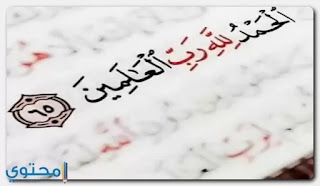 الْحَمْدُ لِلَّهِ رَبِّ الْعَالَمِينَ ٦٥
محتوى